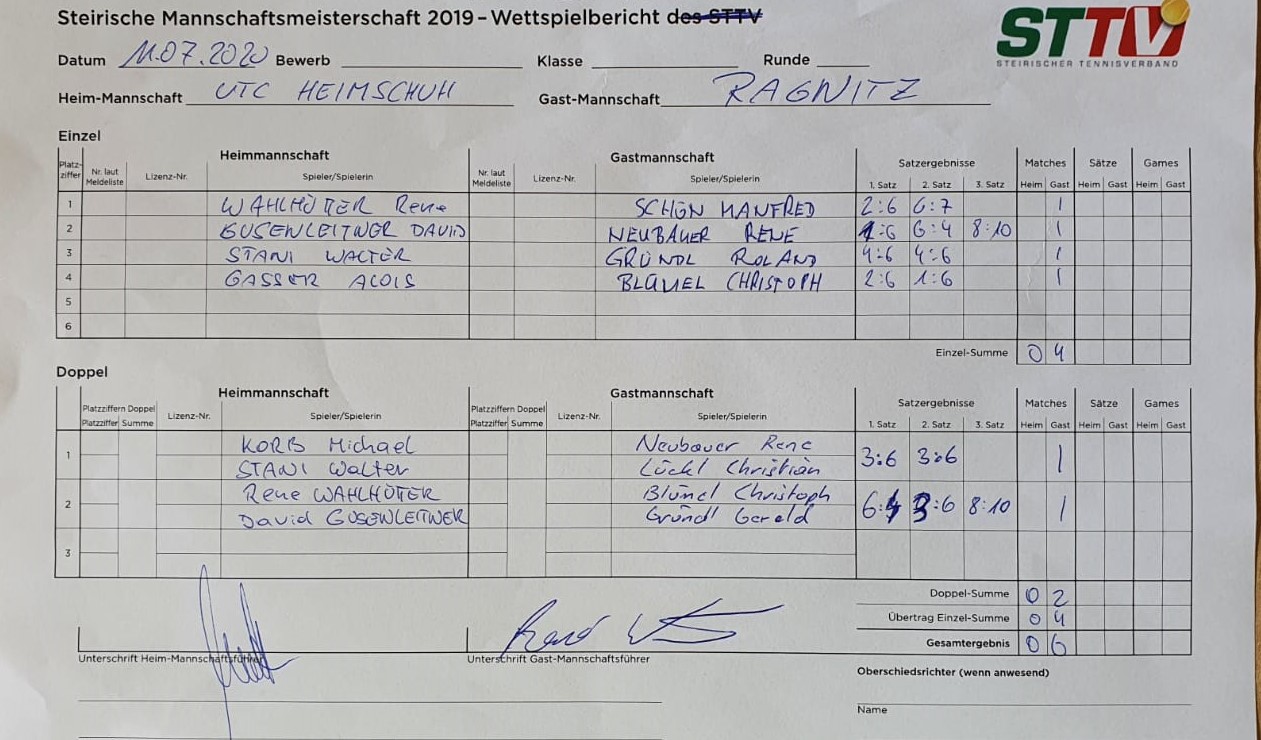 Steirische Mannschaftsmeisterschaft 2019 – Wettspielbericht des STTV
STTV
STEIRISCHER TENNISVERBAND
Datum 11.07.2020 Bewerb Klasse Runde
Heim-Mannschaft UTC HEIMSCHUH Gast-Mannschaft RAGNITZ
Einzel
Heimmannschaft Gastmannschaft Satzergebnisse Matches Sätze Games
Platz-ziffer Nr. laut Meldeliste Lizenz-Nr. Spieler/Spielerin Nr. laut Meldeliste Lizenz-Nr. Spieler/Spielerin 1. Satz 2. Satz 3. Satz Heim Gast Heim Gast Heim Gast
1 WAHLHÜTER Rene SCHÖN MANFRED 2:6 6:7 1
2 GUSENLEITNER DAVID NEUBAUER RENE 1:6 6:4 8:10 1
3 STANI WALTER GRÜNDL ROLAND 4:6 4:6 1
4 GASSER ALOIS BLÜMEL CHRISTOPH 2:6 1:6 1
5
6
Einzel-Summe 0 4
Doppel
Heimmannschaft Gastmannschaft Satzergebnisse Matches Sätze Games
Platzziffern Doppel Lizenz-Nr. Spieler/Spielerin Platzziffern Doppel Lizenz-Nr. Spieler/Spielerin
Platzziffer Summe Platzziffer Summe 1. Satz 2. Satz 3. Satz Heim Gast Heim Gast Heim Gast
KORB Michael Neubauer Rene
1 3:6 3:6 1
STANI Walter Lückl Christian
Rene WAHLHÜTER Blümel Christoph
2 6:4 3:6 8:10 1
David GUSENLEITNER Gründl Gerald
3
Doppel-Summe 0 2
Übertrag Einzel-Summe 0 4
Gesamtergebnis 0 6
Unterschrift Heim-Mannschaftsführer Unterschrift Gast-Mannschaftsführer
Oberschiedsrichter (wenn anwesend)
Name